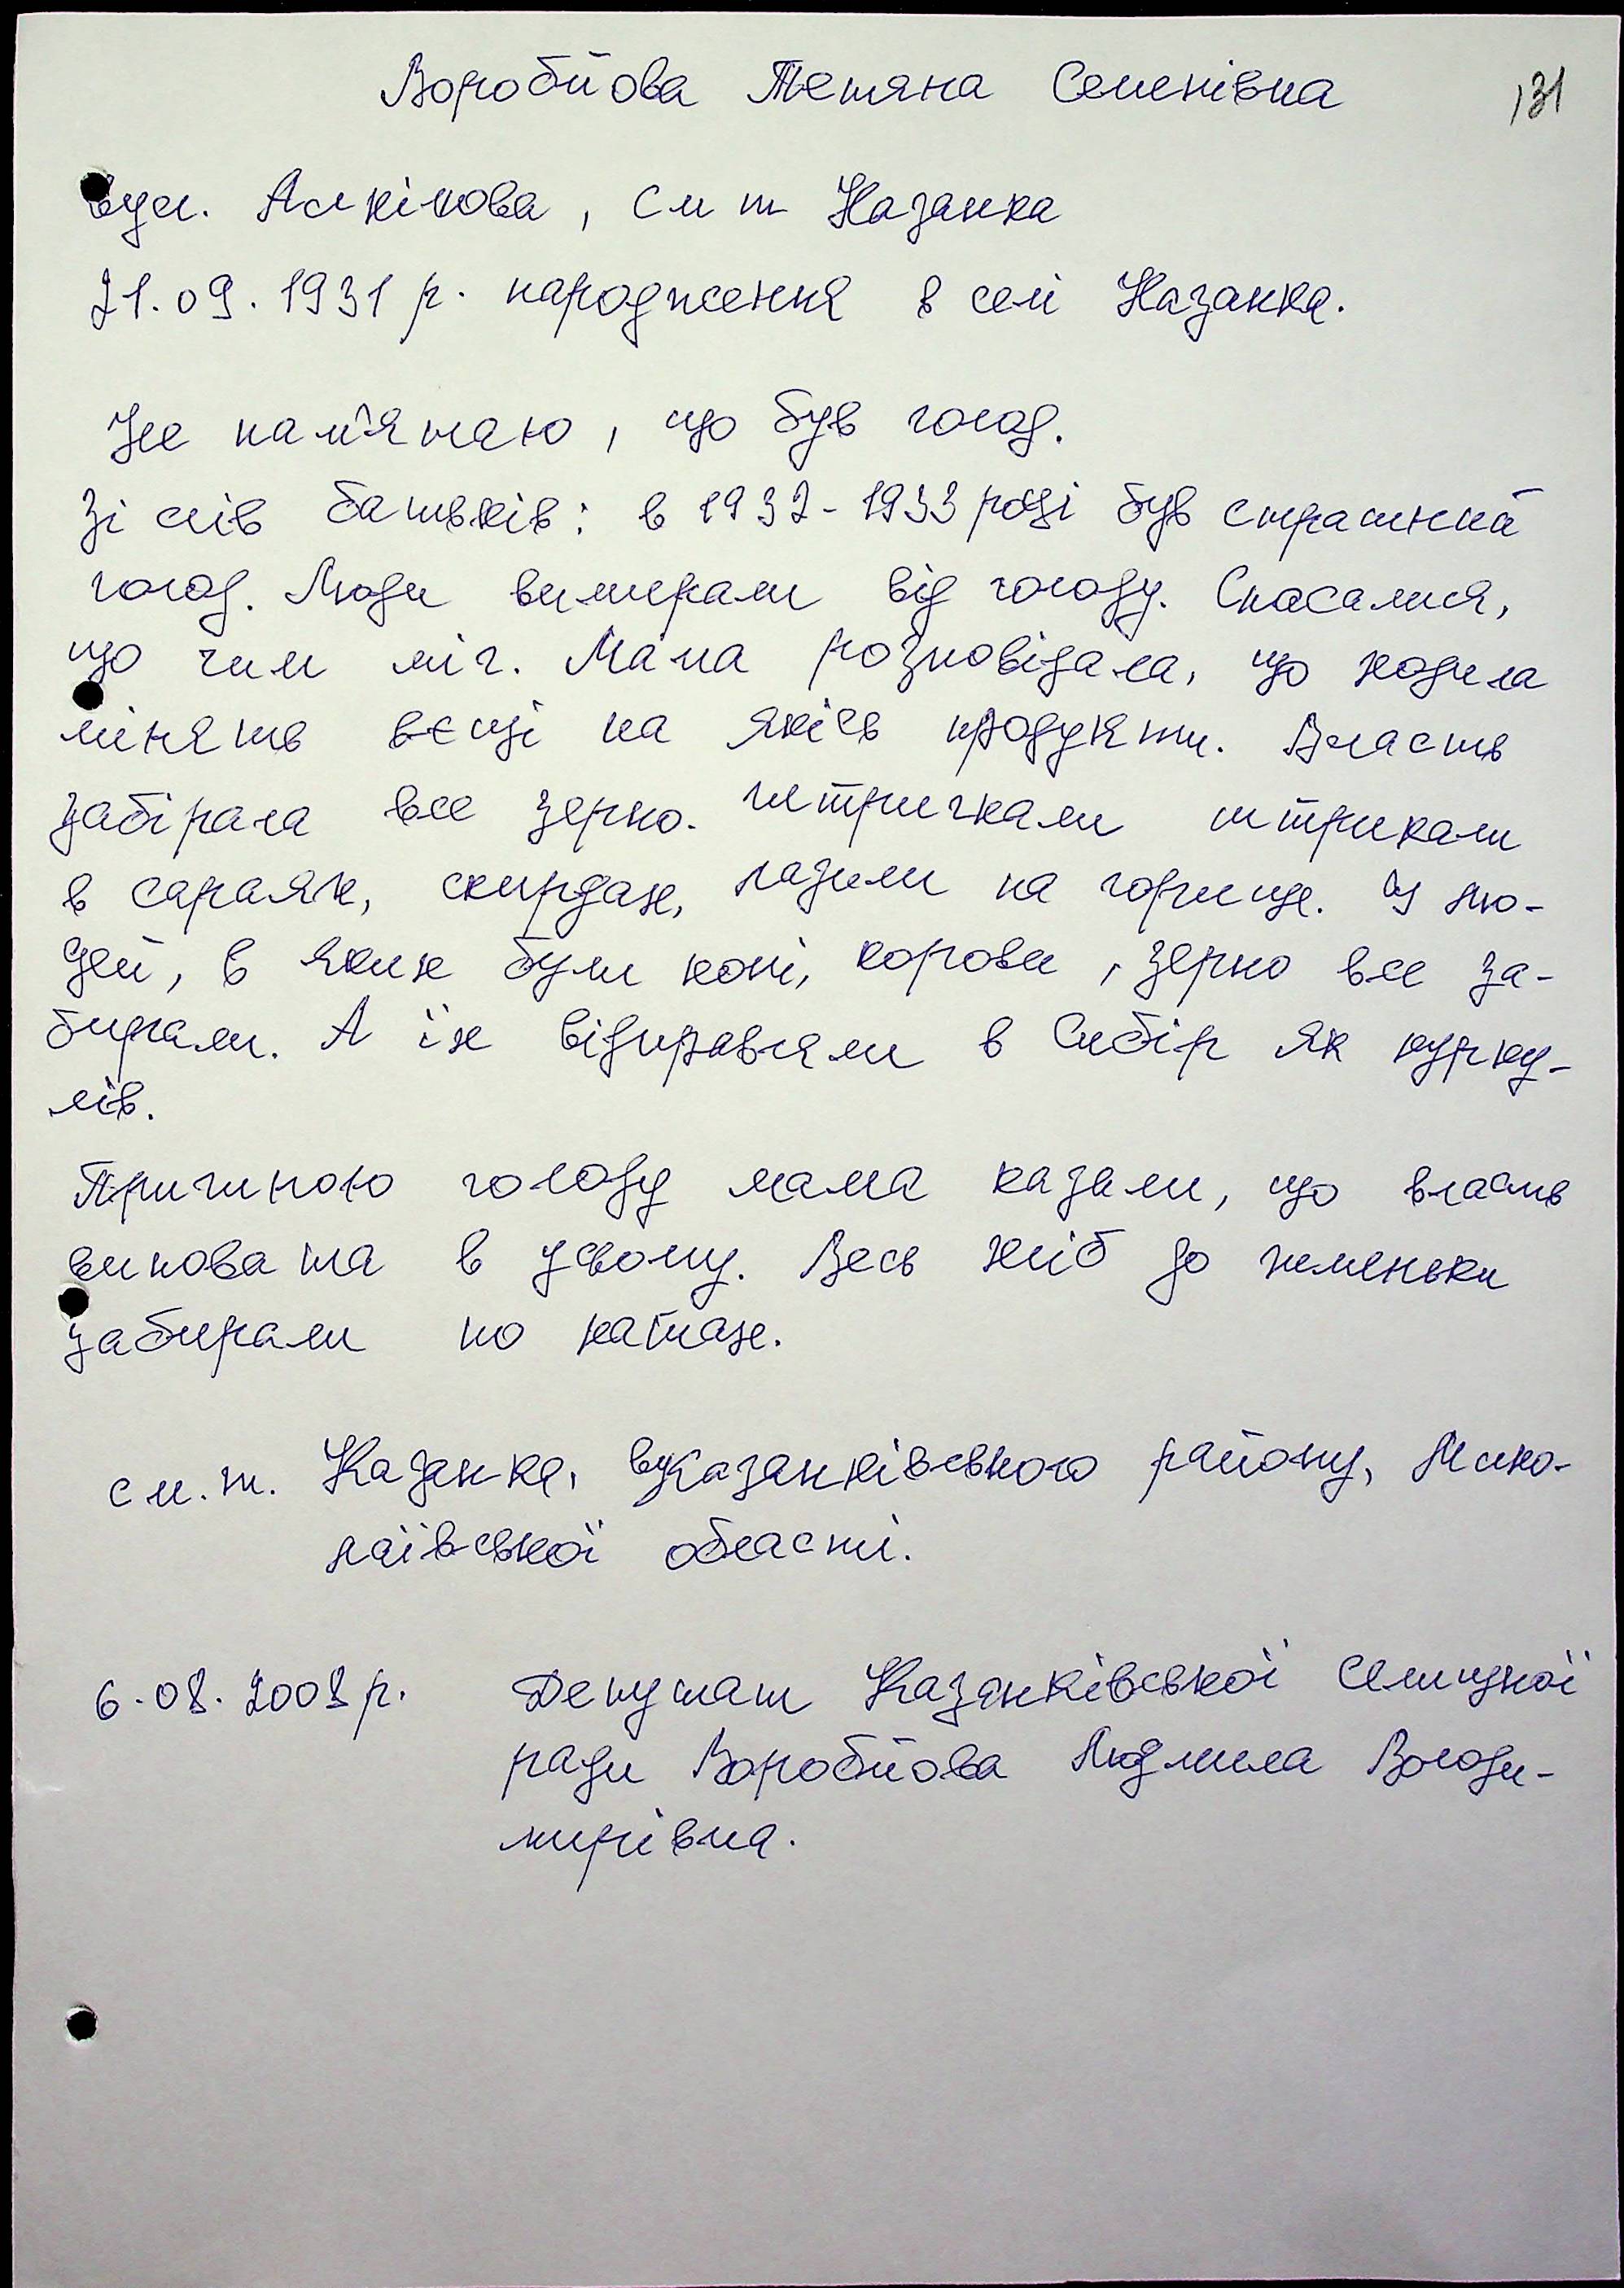 Воробйова Тетяна Семенівна
131
вул. Аскікова, смт Казанка
21.09.1931 р. народження в селі Казанка.
Не пам'ятаю, що був голод.
Зі слів батьків: в 1932-1933 році був страшний
голод. Люди вимирали від голоду. Спасалися,
що чим міг. Мама розповідала, що ходила
мінять вєщі на якісь продукти. Власть
забірала все зерно. Штричками штрикали
в сараях, скирдах, лазили на горище. У лю-
дей, в яких були коні, корови, зерно все за-
бирали. А їх відправляли в Сибір як курку-
лів.
Причиною голоду мама казали, що власть
виновата в усьому. Весь хліб до жменьки
забирали по хатах.
см.т. Казанка, Казанківського району, Мико-
лаївської області.
6.08.2008 р. Депутат Казанківської селищної
ради Воробйова Людмила Володи-
мирівна.